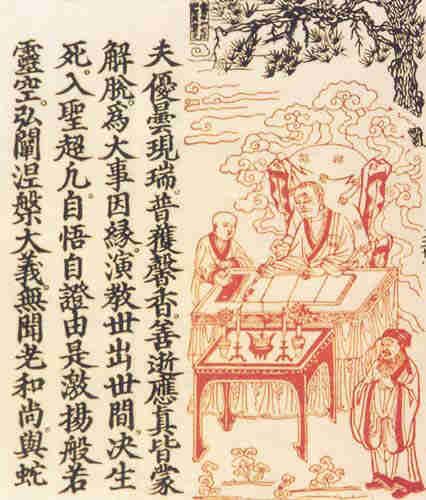 夫優曇現瑞普獲馨香。善逝應真皆蒙
解脫。爲大事因緣。演教丗出丗間。决生
死。入聖超凡。自悟自證由是激揚般若
靈空。弘闡涅槃大義。無聞老和尚。與蛇